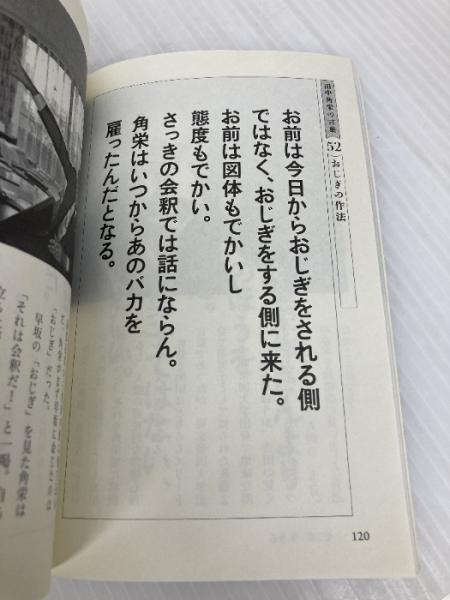 田中角栄の言葉
52 おじぎの作法
お前は今日からおじぎをされる側
ではなく、おじぎをする側に来た。
お前は図体もでかいし
態度もでかい。
さっきの会釈では話にならん。
角栄はいつからあのバカを
雇ったんだとなる。
120
「おじぎ」だった。
早坂の「おじぎ」を見た角栄は
「それは会釈だ！」と一喝。